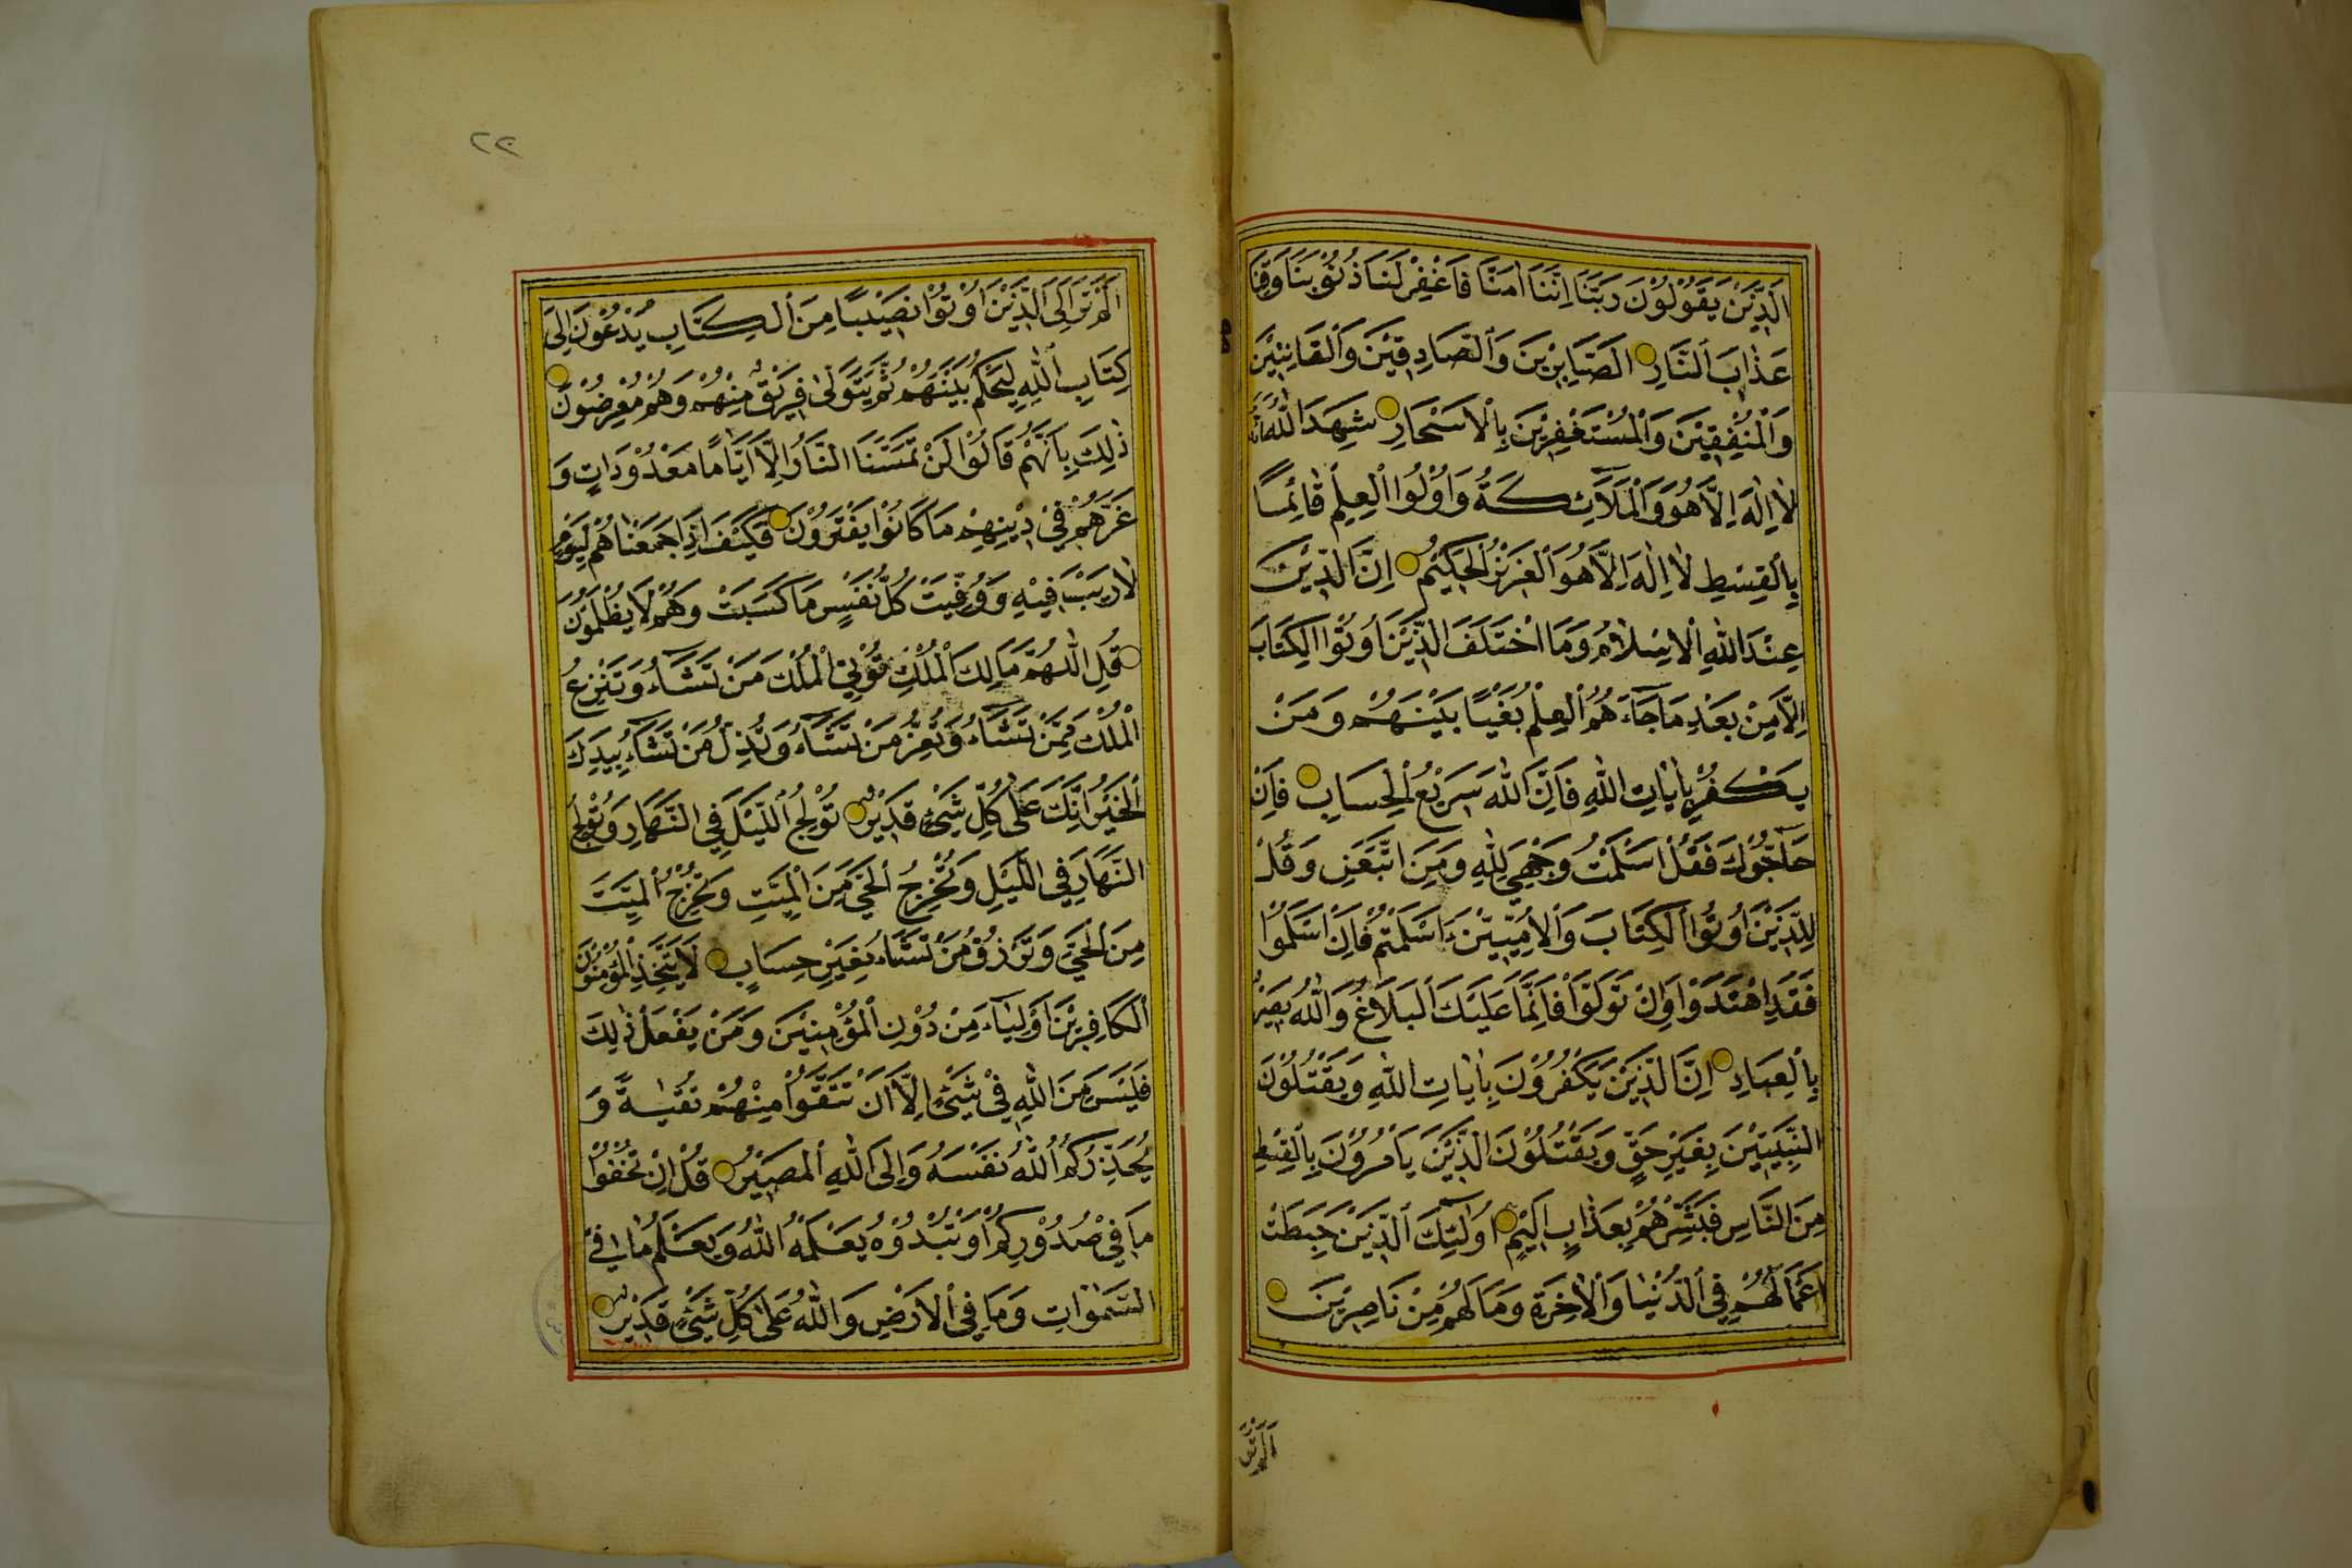 اَلَّذِيْنَ يَقُوْلُوْنَ رَبَّنَا اِنَّنَا اٰمَنَّا فَاغْفِرْ لَنَا ذُنُوْبَنَا وَقِنَا
عَذَابَ النَّارِ الصَّابِرِيْنَ وَالصَّادِقِيْنَ وَالْقَانِتِيْنَ
وَالْمُنْفِقِيْنَ وَالْمُسْتَغْفِرِيْنَ بِالْاَسْحَارِ شَهِدَ اللّٰهُ اَنَّهُ
لَا اِلٰهَ اِلَّا هُوَ وَالْمَلَآئِكَةُ وَاُوْلُوا الْعِلْمِ قَائِمًا
بِالْقِسْطِ لَا اِلٰهَ اِلَّا هُوَ الْعَزِيْزُ الْحَكِيْمُ اِنَّ الدِّيْنَ
عِنْدَ اللّٰهِ الْاِسْلَامُ وَمَا اخْتَلَفَ الَّذِيْنَ اُوْتُوا الْكِتَابَ
اِلَّا مِنْ بَعْدِ مَا جَآءَهُمُ الْعِلْمُ بَغْيًا بَيْنَهُمْ وَمَنْ
يَكْفُرْ بِاٰيَاتِ اللّٰهِ فَاِنَّ اللّٰهَ سَرِيْعُ الْحِسَابِ فَاِنْ
حَآجُّوْكَ فَقُلْ اَسْلَمْتُ وَجْهِيَ لِلّٰهِ وَمَنِ اتَّبَعَنِ وَقُلْ
لِلَّذِيْنَ اُوْتُوا الْكِتَابَ وَالْاُمِّيّٖيْنَ ءَاَسْلَمْتُمْ فَاِنْ اَسْلَمُوْا
فَقَدِ اهْتَدَوْا وَاِنْ تَوَلَّوْا فَاِنَّمَا عَلَيْكَ الْبَلَاغُ وَاللّٰهُ بَصِيْرٌ
بِالْعِبَادِ اِنَّ الَّذِيْنَ يَكْفُرُوْنَ بِاٰيَاتِ اللّٰهِ وَيَقْتُلُوْنَ
النَّبِيّٖيْنَ بِغَيْرِ حَقٍّ وَيَقْتُلُوْنَ الَّذِيْنَ يَاْمُرُوْنَ بِالْقِسْطِ
مِنَ النَّاسِ فَبَشِّرْهُمْ بِعَذَابٍ اَلِيْمٍ اُولٰٓئِكَ الَّذِيْنَ حَبِطَتْ
اَعْمَالُهُمْ فِي الدُّنْيَا وَالْاٰخِرَةِ وَمَا لَهُمْ مِنْ نَاصِرِيْنَ
اَلَمْ تَرَ
٢٢
اَلَمْ تَرَ اِلَى الَّذِيْنَ اُوْتُوْا نَصِيْبًا مِنَ الْكِتَابِ يُدْعَوْنَ اِلٰى
كِتَابِ اللّٰهِ لِيَحْكُمَ بَيْنَهُمْ ثُمَّ يَتَوَلّٰى فَرِيْقٌ مِنْهُمْ وَهُمْ مُعْرِضُوْنَ
ذٰلِكَ بِاَنَّهُمْ قَالُوْا لَنْ تَمَسَّنَا النَّارُ اِلَّا اَيَّامًا مَعْدُوْدَاتٍ وَ
غَرَّهُمْ فِيْ دِيْنِهِمْ مَا كَانُوْا يَفْتَرُوْنَ فَكَيْفَ اِذَا جَمَعْنَاهُمْ لِيَوْمٍ
لَا رَيْبَ فِيْهِ وَوُفِّيَتْ كُلُّ نَفْسٍ مَا كَسَبَتْ وَهُمْ لَا يُظْلَمُوْنَ
قُلِ اللّٰهُمَّ مَالِكَ الْمُلْكِ تُؤْتِي الْمُلْكَ مَنْ تَشَآءُ وَتَنْزِعُ
الْمُلْكَ مِمَّنْ تَشَآءُ وَتُعِزُّ مَنْ تَشَآءُ وَتُذِلُّ مَنْ تَشَآءُ بِيَدِكَ
الْخَيْرُ اِنَّكَ عَلٰى كُلِّ شَيْءٍ قَدِيْرٌ تُوْلِجُ اللَّيْلَ فِي النَّهَارِ وَتُوْلِجُ
النَّهَارَ فِي اللَّيْلِ وَتُخْرِجُ الْحَيَّ مِنَ الْمَيِّتِ وَتُخْرِجُ الْمَيِّتَ
مِنَ الْحَيِّ وَتَرْزُقُ مَنْ تَشَآءُ بِغَيْرِ حِسَابٍ لَا يَتَّخِذِ الْمُؤْمِنُوْنَ
الْكَافِرِيْنَ اَوْلِيَآءَ مِنْ دُوْنِ الْمُؤْمِنِيْنَ وَمَنْ يَفْعَلْ ذٰلِكَ
فَلَيْسَ مِنَ اللّٰهِ فِيْ شَيْءٍ اِلَّا اَنْ تَتَّقُوْا مِنْهُمْ تُقٰيةً وَ
يُحَذِّرُكُمُ اللّٰهُ نَفْسَهُ وَاِلَى اللّٰهِ الْمَصِيْرُ قُلْ اِنْ تُخْفُوْا
مَا فِيْ صُدُوْرِكُمْ اَوْ تُبْدُوْهُ يَعْلَمْهُ اللّٰهُ وَيَعْلَمُ مَا فِي
السَّمٰوَاتِ وَمَا فِي الْاَرْضِ وَاللّٰهُ عَلٰى كُلِّ شَيْءٍ قَدِيْرٌ